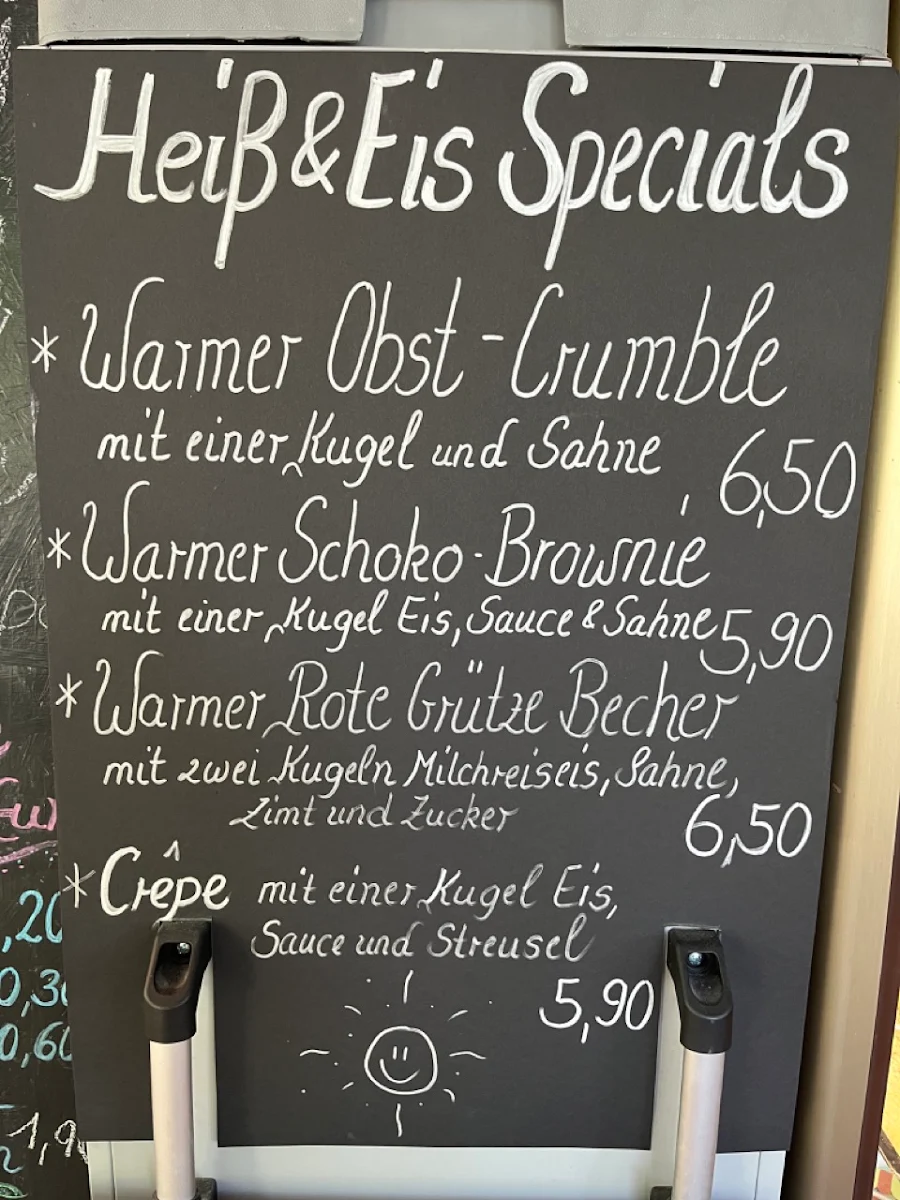 Heiß & Eis Specials
* Warmer Obst-Crumble
mit einer Kugel und Sahne, 6,50
* Warmer Schoko-Brownie
mit einer Kugel Eis, Sauce & Sahne 5,90
* Warmer Rote Grütze Becher
mit zwei Kugeln Milchreiseis, Sahne,
Zimt und Zucker 6,50
* Crêpe mit einer Kugel Eis,
Sauce und Streusel
5,90
,20
0,30
0,60
1,9